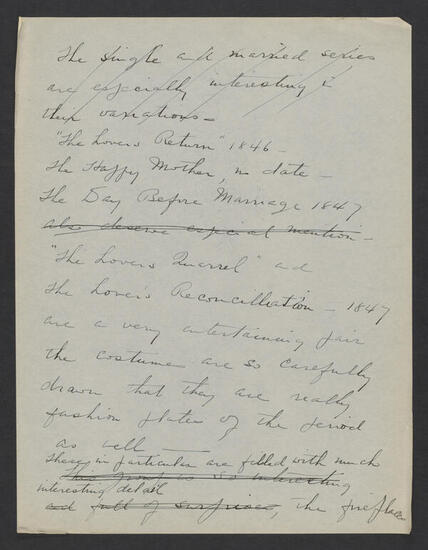 The single and married series
are especially interesting in
their variations –
"The Lovers Return" 1846 –
The Happy Mother, no date –
The Day Before Marriage 1847
also deserve especial mention –
"The Lovers Quarrel" and
The Lover's Reconcilliation – 1847
are a very entertaining pair
the costumes are so carefully
drawn that they are really
fashion plates of the period
as well –
These in particular are filled with much
This group is so interesting
interesting detail
and full of surprises, the fireplace